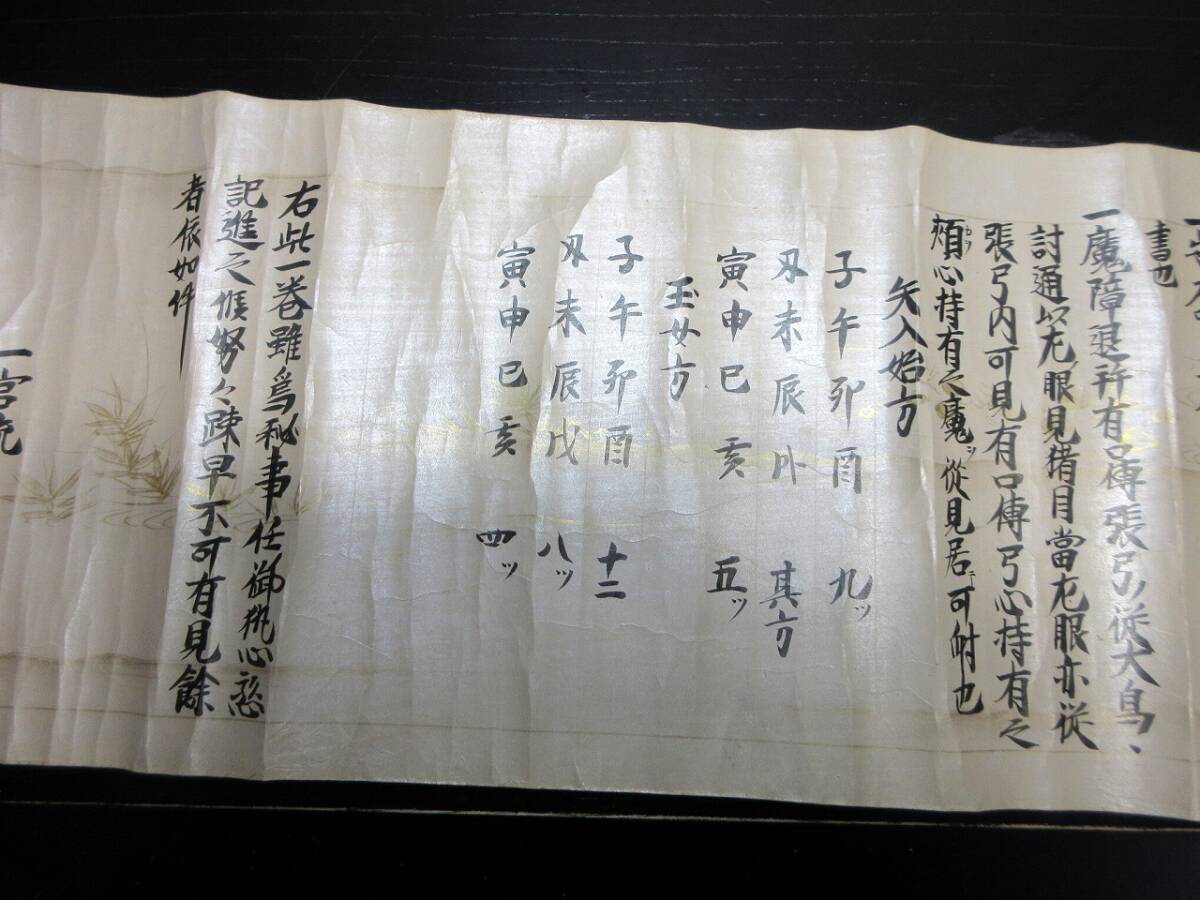 書也
一魔障退并有口傳張弓ノ從大鳥、
討通以左眼見猪目當左眼亦從
張弓内可見有口傳弓心持有之
頬心持有之魔ヲ從見居テ可射也
矢入始方
子午卯酉 九ツ
丑未辰戌 其方
寅申巳亥 五ツ
玉女方
子午卯酉 十二
丑未辰戌 八ツ
寅申巳亥 四ツ
右此一巻雖爲秘事任御執心
記進之候努々疎早不可有見餘
者依如件
一宮流